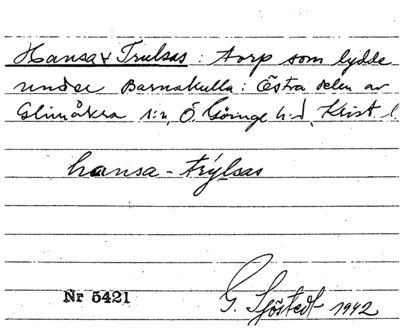 Hansa & Trulsas : torp som lydde
under Barnakulla : Östra delen av
Glimåkra s:n, Ö. Göinge h:d, Krist. l.
hansa - trýlsas
Nr 5421
G. Sjöstedt 1942